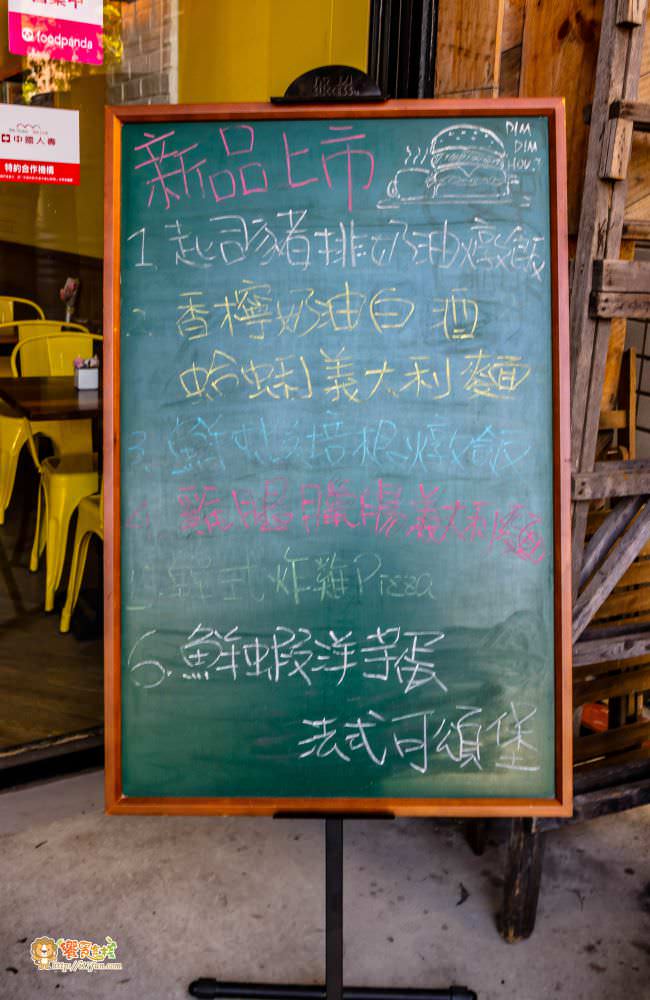 foodpanda
中國人壽
特約合作機構
新品上市
DIM
DIM
HOUSE
1. 起司豬排奶油燉飯
2. 香檸奶油白酒
蛤蜊義大利麵
3. 鮮蝦培根燉飯
4. 雞腿臘腸義大利麵
5. 韓式炸雞Pizza
6. 鮮蝦洋芋蛋
法式可頌堡